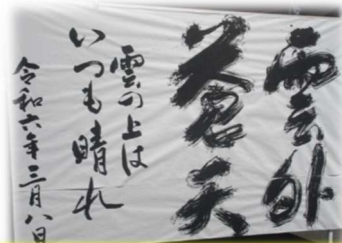 雲外
蒼天
雲の上は
いつも晴れ
令和六年三月八日